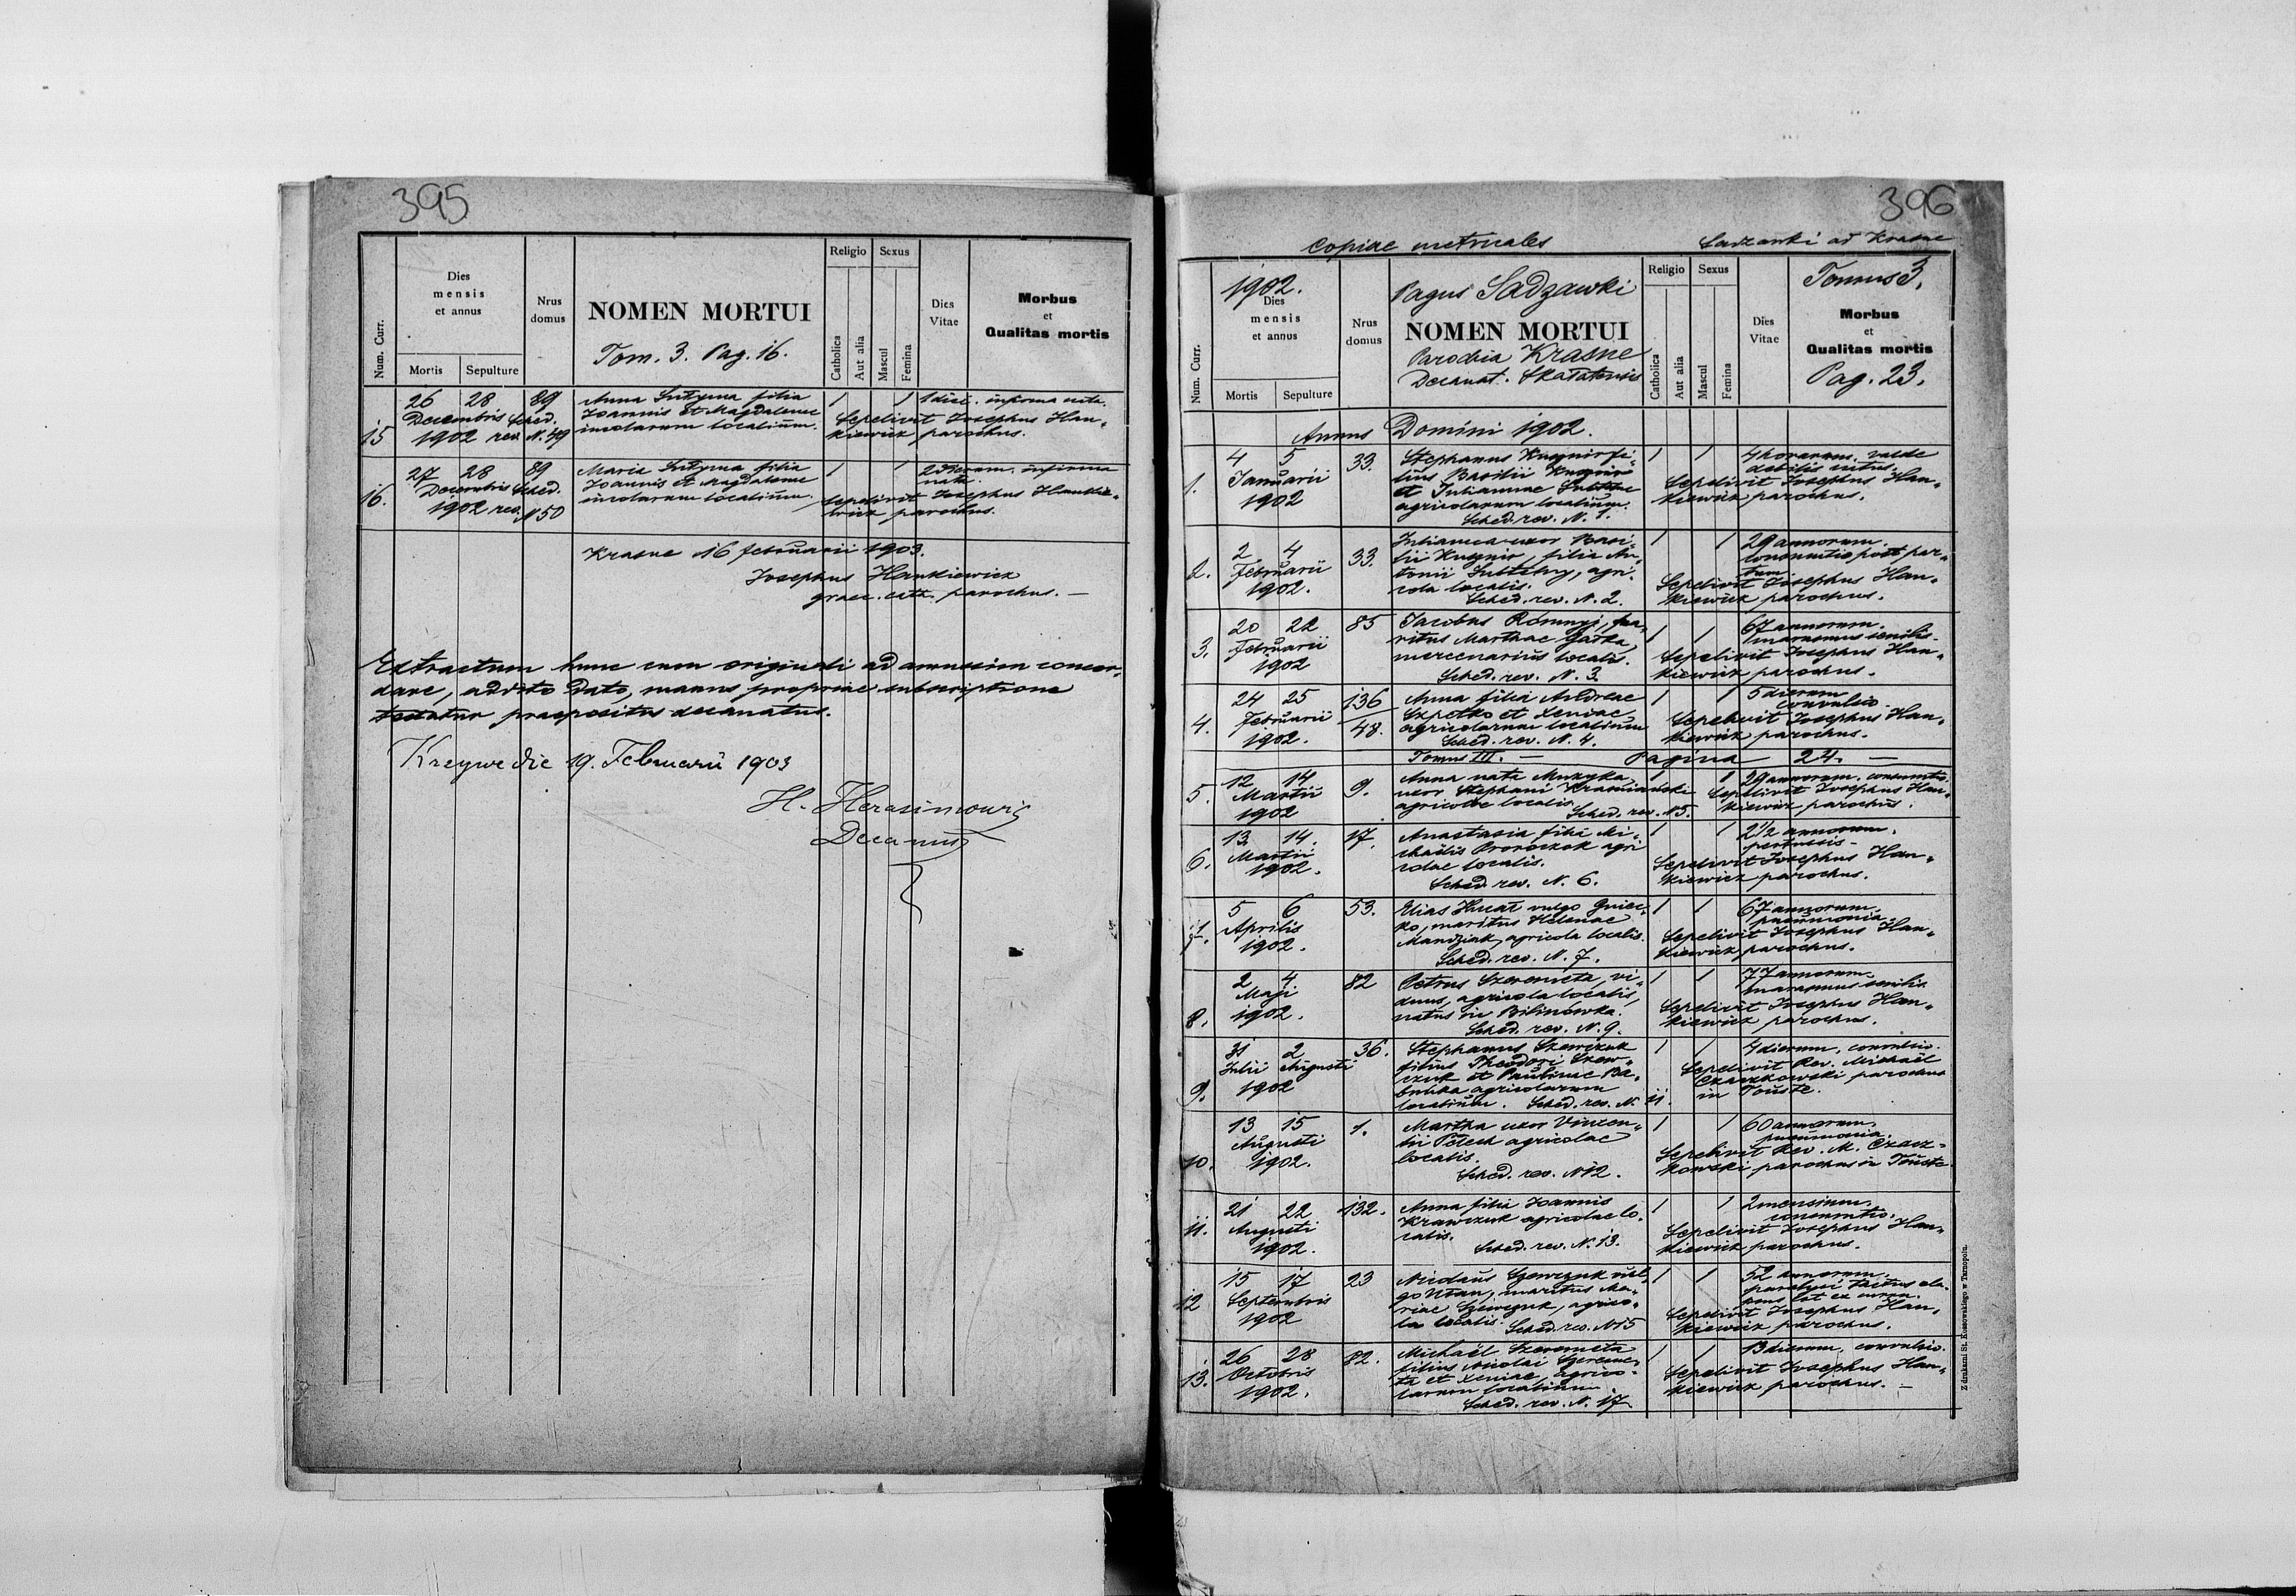 395
Num. Curr.
Dies
mensis
et annus
Mortis
Sepulture
Nrus
domus
NOMEN MORTUI
Tom. 3. Pag. 16.
Religio
Sexus
Catholica
Aut alia
Mascul
Femina
Dies
Vitae
Morbus
et
Qualitas mortis
15
26 28
Decembris
1902
89
Sched.
rev. N. 49
Anna filia
Joannis et Magdalenae
incolarum localium.
1 1 1 diei. infirma nata.
Sepelivit Josephus Han-
kiewicz parochus.
16.
27 28
Decembris
1902
89
Sched.
rev. N 50
Maria filia
Joannis et Magdalenae
incolarum localium.
1 1 2 dierum. infirma
nata.
Sepelivit Josephus Hankie-
wicz parochus.
Krasne 16 februarii 1903.
Josephus Hankiewicz
graec. cath. parochus. —
Extractum hunc cum originali ad amussim concor-
dare, addito dato, manus propriae subscriptione
testatur praepositus decanatus.
Kreywe die 19. Februarii 1903
H. Herasimowicz
Decanus
396
Copiae metricales
Sadzawki ad Krasne
Num. Curr.
1902.
Dies
mensis
et annus
Mortis
Sepulture
Nrus
domus
Pagus Sadzawki
NOMEN MORTUI
Parochia Krasne
Decanat. Skalatensis
Religio
Sexus
Catholica
Aut alia
Mascul
Femina
Dies
Vitae
Tomus 3.
Morbus
et
Qualitas mortis
Pag. 23.
Annus Domini 1902.
1.
4 5
Januarii
1902
33.
Stephanus Kusznir fi-
lius Basilii Kusznir
et Juliannae
agricolarum localium.
Sched. rev. N. 1.
1 1 4 horarum. valde
debilis vitus.
Sepelivit Josephus Han-
kiewicz parochus.
2.
2 4
Februarii
1902.
33.
Julianna uxor Basi-
lii Kusznir, filia An-
tonii agri-
cola localis.
Sched. rev. N. 2.
1 1 29 annorum.
consumtio post par-
tum.
Sepelivit Josephus Han-
kiewicz parochus.
3.
20 22
Februarii
1902
85
Jacobus Romnyj, ma-
ritus Marthae Gaska,
mercenarius localis.
Sched. rev. N. 3.
1 1 67 annorum.
marasmus senilis.
Sepelivit Josephus Han-
kiewicz parochus.
4.
24 25
Februarii
1902.
136
48.
Anna filia Andreae
Szpetko et Xeniae
agricolarum localium
Sched. rev. N. 4.
1 1 5 dierum
convulsio.
Sepelivit Josephus Han-
kiewicz parochus.
Tomus III. — Pagina 24. —
5.
12 14
Martii
1902
9.
Anna nata Muzyka,
uxor Stephani Krasnianski
agricolae localis.
Sched. rev. N5.
1 1 29 annorum. consumtio.
Sepelivit Josephus Han-
kiewicz parochus.
6.
13 14.
Martii
1902.
17.
Anastasia filia Mi-
chaëlis Proroczok agri
colae localis.
Sched. rev. N. 6.
1 1 2 1/2 annorum.
pertussis -
Sepelivit Josephus Han-
kiewicz parochus.
7.
5 6
Aprilis
1902.
53.
Elias Hucat vulgo Gniec-
ko, maritus Helenae
Mandziak, agricola localis.
Sched. rev. N. 7.
1 1 67 annorum.
pneumonia.
Sepelivit Josephus Han-
kiewicz parochus.
8.
2 4
Maji
1902.
82
Petrus Szeremeta, vi-
duus, agricola localis,
natus in Bilinówka.
Sched. rev. N. 9.
1 1 77 annorum.
marasmus senilis.
Sepelivit Josephus Han-
kiewicz parochus.
9.
31 2
Julii Augusti
1902
36.
Stephanus Szewczuk
filius Theodori Szew-
czuk et Paulinae Ba-
bulka agricolarum
localium. Sched. rev. N. 11.
1 1 4 dierum, convulsio.
Sepelivit Rev. Michaël
Czaczkowski parochus
in Touste.
10.
13 15
Augusti
1902.
1.
Martha uxor Vincen-
tii Petech agricolae
localis.
Sched. rev. N12.
1 1 60 annorum.
pneumonia.
Sepelivit Rev. M. Czacz-
kowski parochus in Touste
11.
21 22
Augusti
1902.
132.
Anna filia Joannis
Krawczuk agricolae lo-
calis.
Sched. rev. N. 13.
1 1 2 mensium.
consumtio.
Sepelivit Josephus Han-
kiewicz parochus.
12
15 17
Septembris
1902
23
Nicolaus Szewczuk vul-
go maritus Ma-
riae Szewczuk, agrico-
la localis. Sched. rev. N15
1 1 52 annorum.
paralysi tactus
Sepelivit Josephus Han-
kiewicz parochus.
13.
26 28
Octobris
1902.
82.
Michaël Szeremeta
filius Nicolai Szereme-
ta et Xeniae, agrico-
larum localium.
Sched. rev. N. 17.
1 1 13 dierum, convulsio.
Sepelivit Josephus Han-
kiewicz parochus. —
Z drukarni St. Kossowskiego w Tarnopolu.